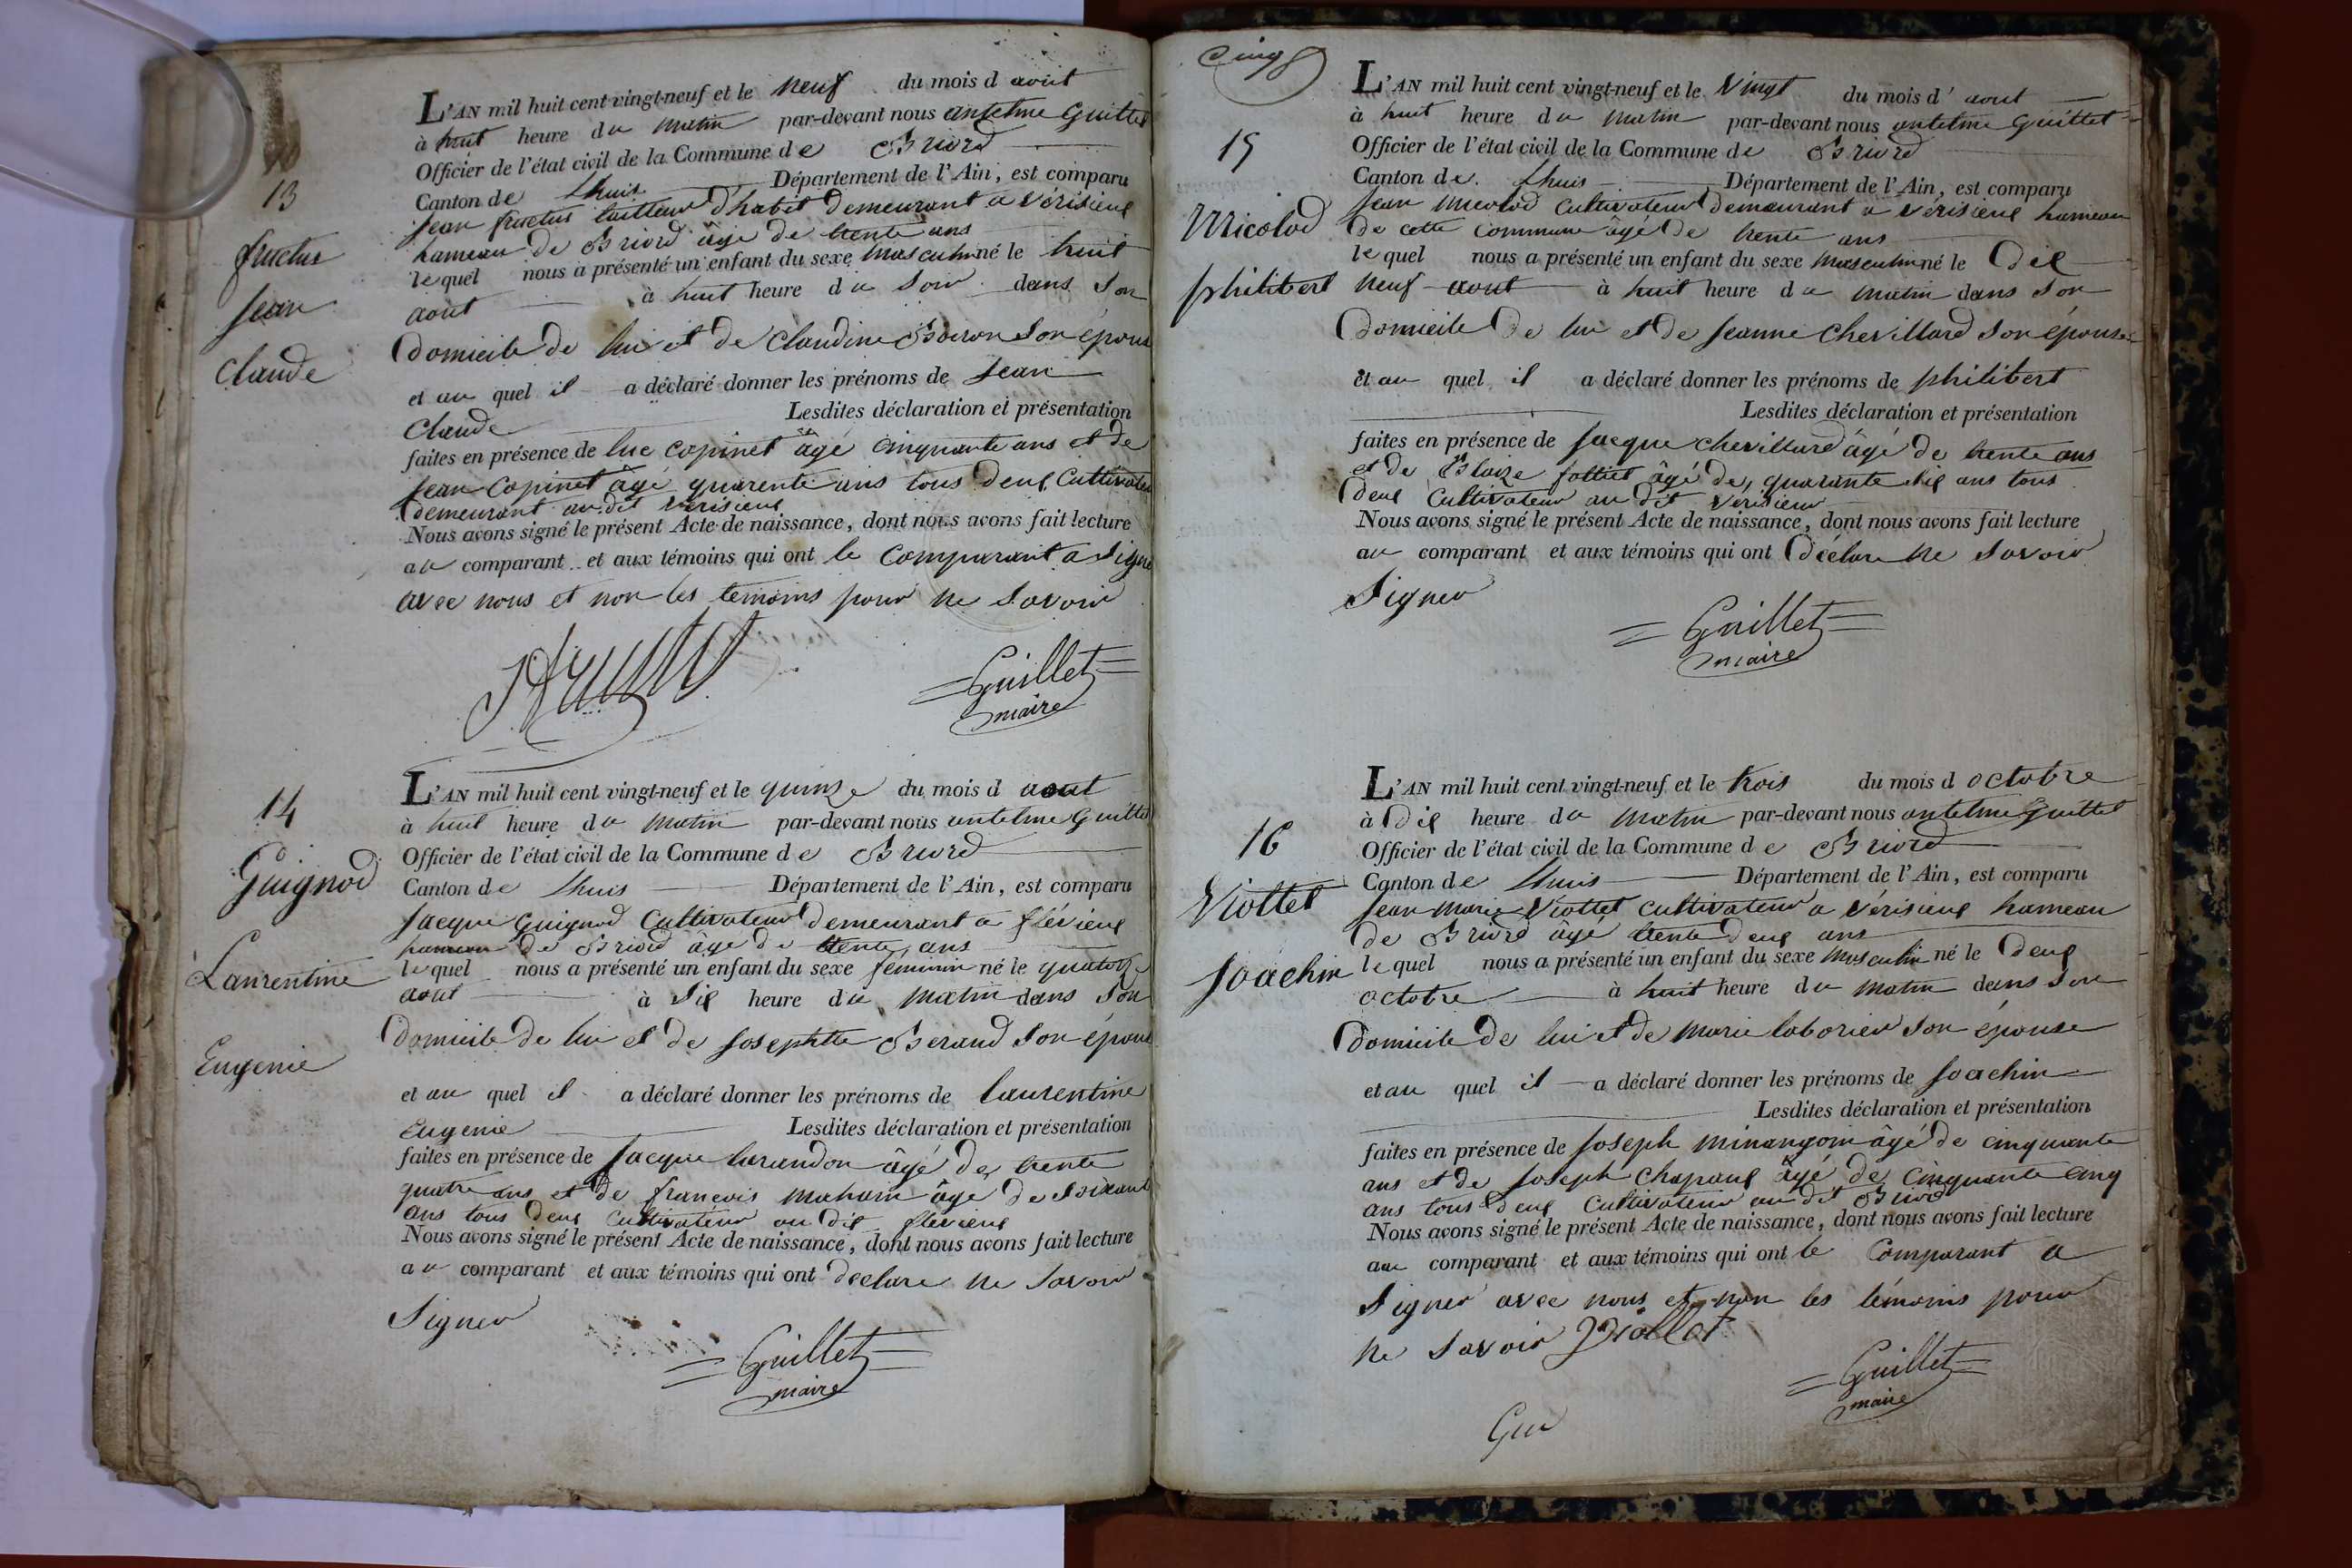 13
fructus
Jean
Claude
L'AN mil huit cent vingt-neuf et le neuf du mois d août
à huit heure du matin par-devant nous antelme Guillet
Officier de l'état civil de la Commune de Briord
Canton de Lhuis Département de l'Ain, est comparu
Jean fructus tailleur d'habit demeurant a vérisieux
hameau de Briord âgé de trente ans
lequel nous a présenté un enfant du sexe masculin né le huit
aout à huit heure du soir dans son
domicile de lui et de Claudine son épouse
et au quel il a déclaré donner les prénoms de Jean
Claude Lesdites déclaration et présentation
faites en présence de luc copinet âgé cinquante ans et de
Jean Copinet âgé quarente ans tous deux Cultivateur
demeurant audit vérisieux
Nous avons signé le présent Acte de naissance, dont nous avons fait lecture
au comparant et aux témoins qui ont le comparant a signé
avec nous et non les temoins pour ne savoir
Guillet
maire
14
Guignod
Laurentine
Eugenie
L'AN mil huit cent vingt-neuf et le quinze du mois d aout
à huit heure du matin par-devant nous antelme Guillet
Officier de l'état civil de la Commune de Briord
Canton de Lhuis Département de l'Ain, est comparu
Jacque Guignod Cultivateur demeurant a flévieux
hameau de Briord âgé de trente ans
lequel nous a présenté un enfant du sexe féminin né le quatorze
aout à six heure du matin dans son
domicile de lui et de Josephtte Beraud son épouse
et au quel il a déclaré donner les prénoms de laurentine
Eugenie Lesdites déclaration et présentation
faites en présence de Jacque âgé de trente
quatre ans et de francois âgé de soixante
ans tous deux Cultivateur au dit flévieux
Nous avons signé le présent Acte de naissance, dont nous avons fait lecture
au comparant et aux témoins qui ont déclare ne savoir
Signer
Guillet
maire
Cinq
15
Micolod
philibert
L'AN mil huit cent vingt-neuf et le Vingt du mois d' aout
à huit heure du matin par-devant nous antelme Guillet
Officier de l'état civil de la Commune de Briord
Canton de Lhuis Département de l'Ain, est comparu
Jean Micolod Cultivateur demeurant a vérisieux hameau
de cette Commune âgé de trente ans
lequel nous a présenté un enfant du sexe masculin né le dix
neuf aout à huit heure du matin dans son
domicile de lui et de Jeanne Chevillard son épouse
et au quel il a déclaré donner les prénoms de philibert
Lesdites déclaration et présentation
faites en présence de Jacque chevillard âgé de trente ans
et de Blaize âgé de quarante six ans tous
deux Cultivateur au dit verisieux
Nous avons signé le présent Acte de naissance, dont nous avons fait lecture
au comparant et aux témoins qui ont déclare ne savoir
Signer
Guillet
maire
16
Viollet
Joachin
L'AN mil huit cent vingt-neuf et le trois du mois d octobre
à dix heure du matin par-devant nous antelme Guillet
Officier de l'état civil de la Commune de Briord
Canton de Lhuis Département de l'Ain, est comparu
Jean Marie Viollet cultivateur a vérisieux hameau
de Briord âgé trente deux ans
lequel nous a présenté un enfant du sexe masculin né le deux
octobre à huit heure du matin dans son
domicile de lui et de Marie laborier son épouse
et au quel il a déclaré donner les prénoms de Joachin
Lesdites déclaration et présentation
faites en présence de Joseph minangoin âgé de cinquante
ans et de Joseph Chapaux âgé de cinquante cinq
ans tous deux Cultivateur au dit Briord
Nous avons signé le présent Acte de naissance, dont nous avons fait lecture
au comparant et aux témoins qui ont le Comparant a
signer avec nous et non les témoins pour
ne savoir Viollet
Guillet
maire